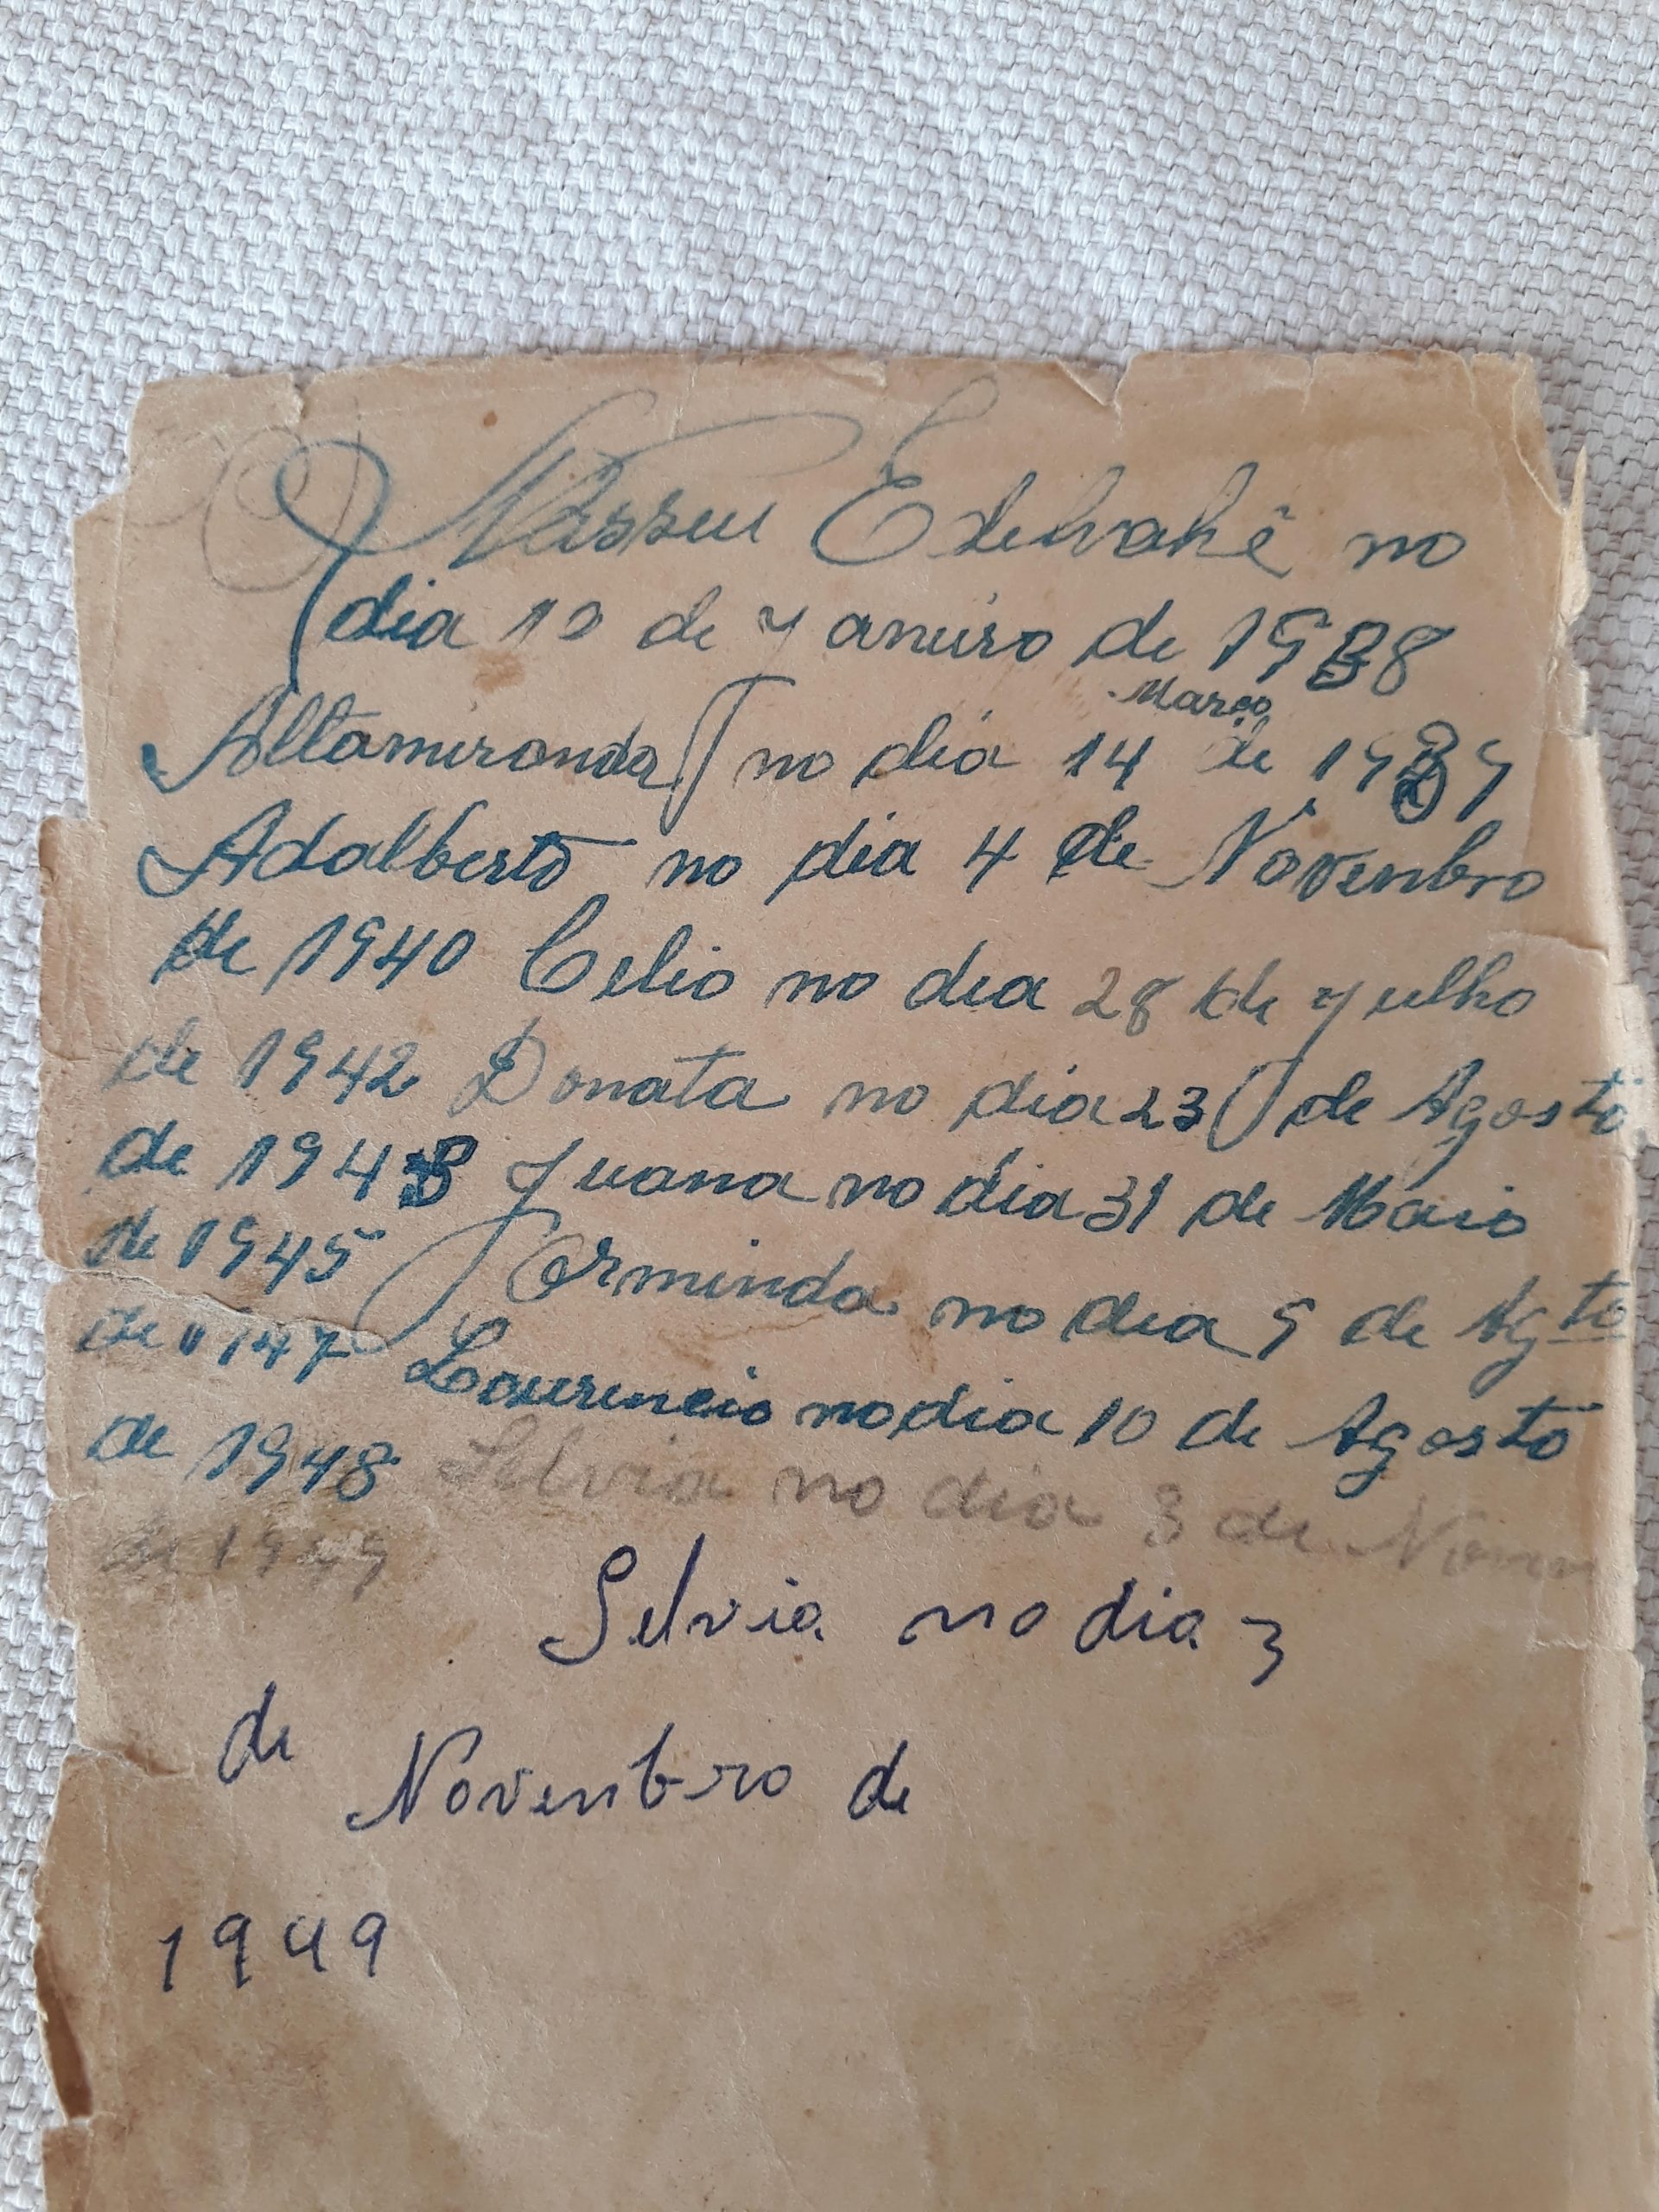 Nasseu Edelvahê no
dia 10 de Janeiro de 1938
Março
Altamiranda no dia 14 de 1939
Adalberto no dia 4 de Novenbro
de 1940 Celio no dia 28 de Julho
de 1942 Donata no dia 23 de Agosto
de 1943 Juana no dia 31 de Maio
de 1945 Orminda no dia 9 de Agto
de 1947 Laurencio no dia 10 de Agosto
de 1948 Selvia no dia 3 de
de 1949
Selvia no dia 3
de
Novenbro de
1949